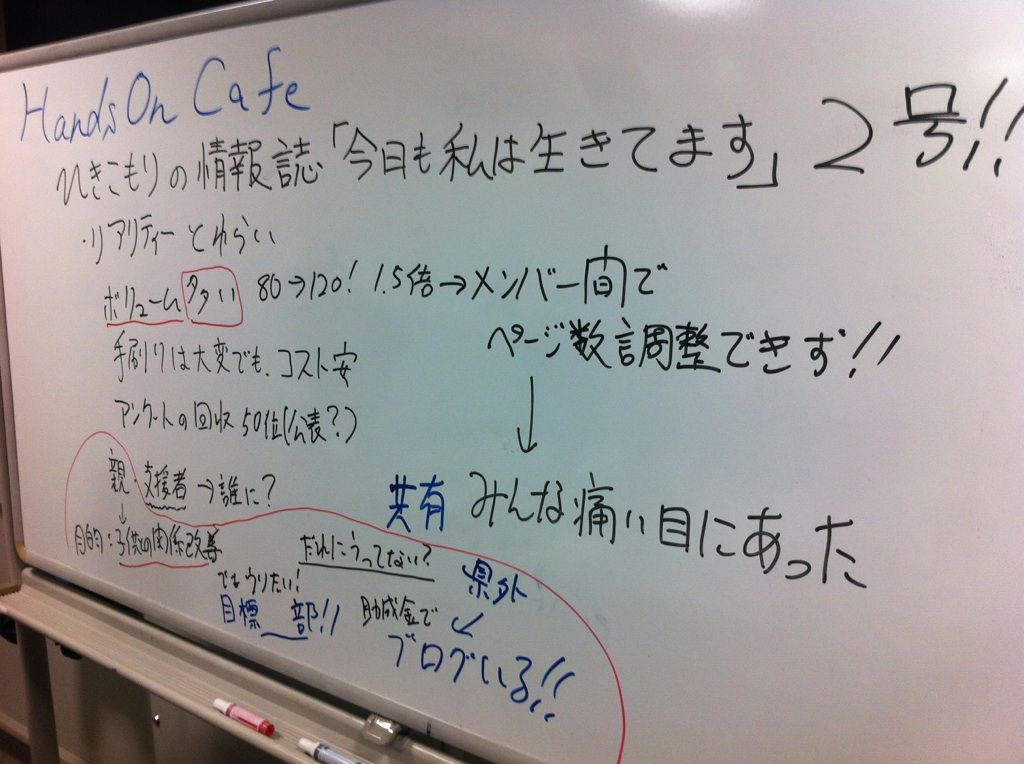 HandsOn Cafe
ひきこもりの情報誌「今日も私は生きてます」2号!!
・リアリティー とわらい
ボリューム 多い 80→120! 1.5倍→メンバー間で
ページ数調整できず!!
手刷りは大変でも、コスト安
アンケートの回収 50位(公表?)
↓
親・支援者→誰に?
共有 みんな痛い目にあった
↓
目的:子供との関係改善
だれにうってない?
でもうりたい!
県外
目標 部!!
助成金で ↙
ブログいる!!